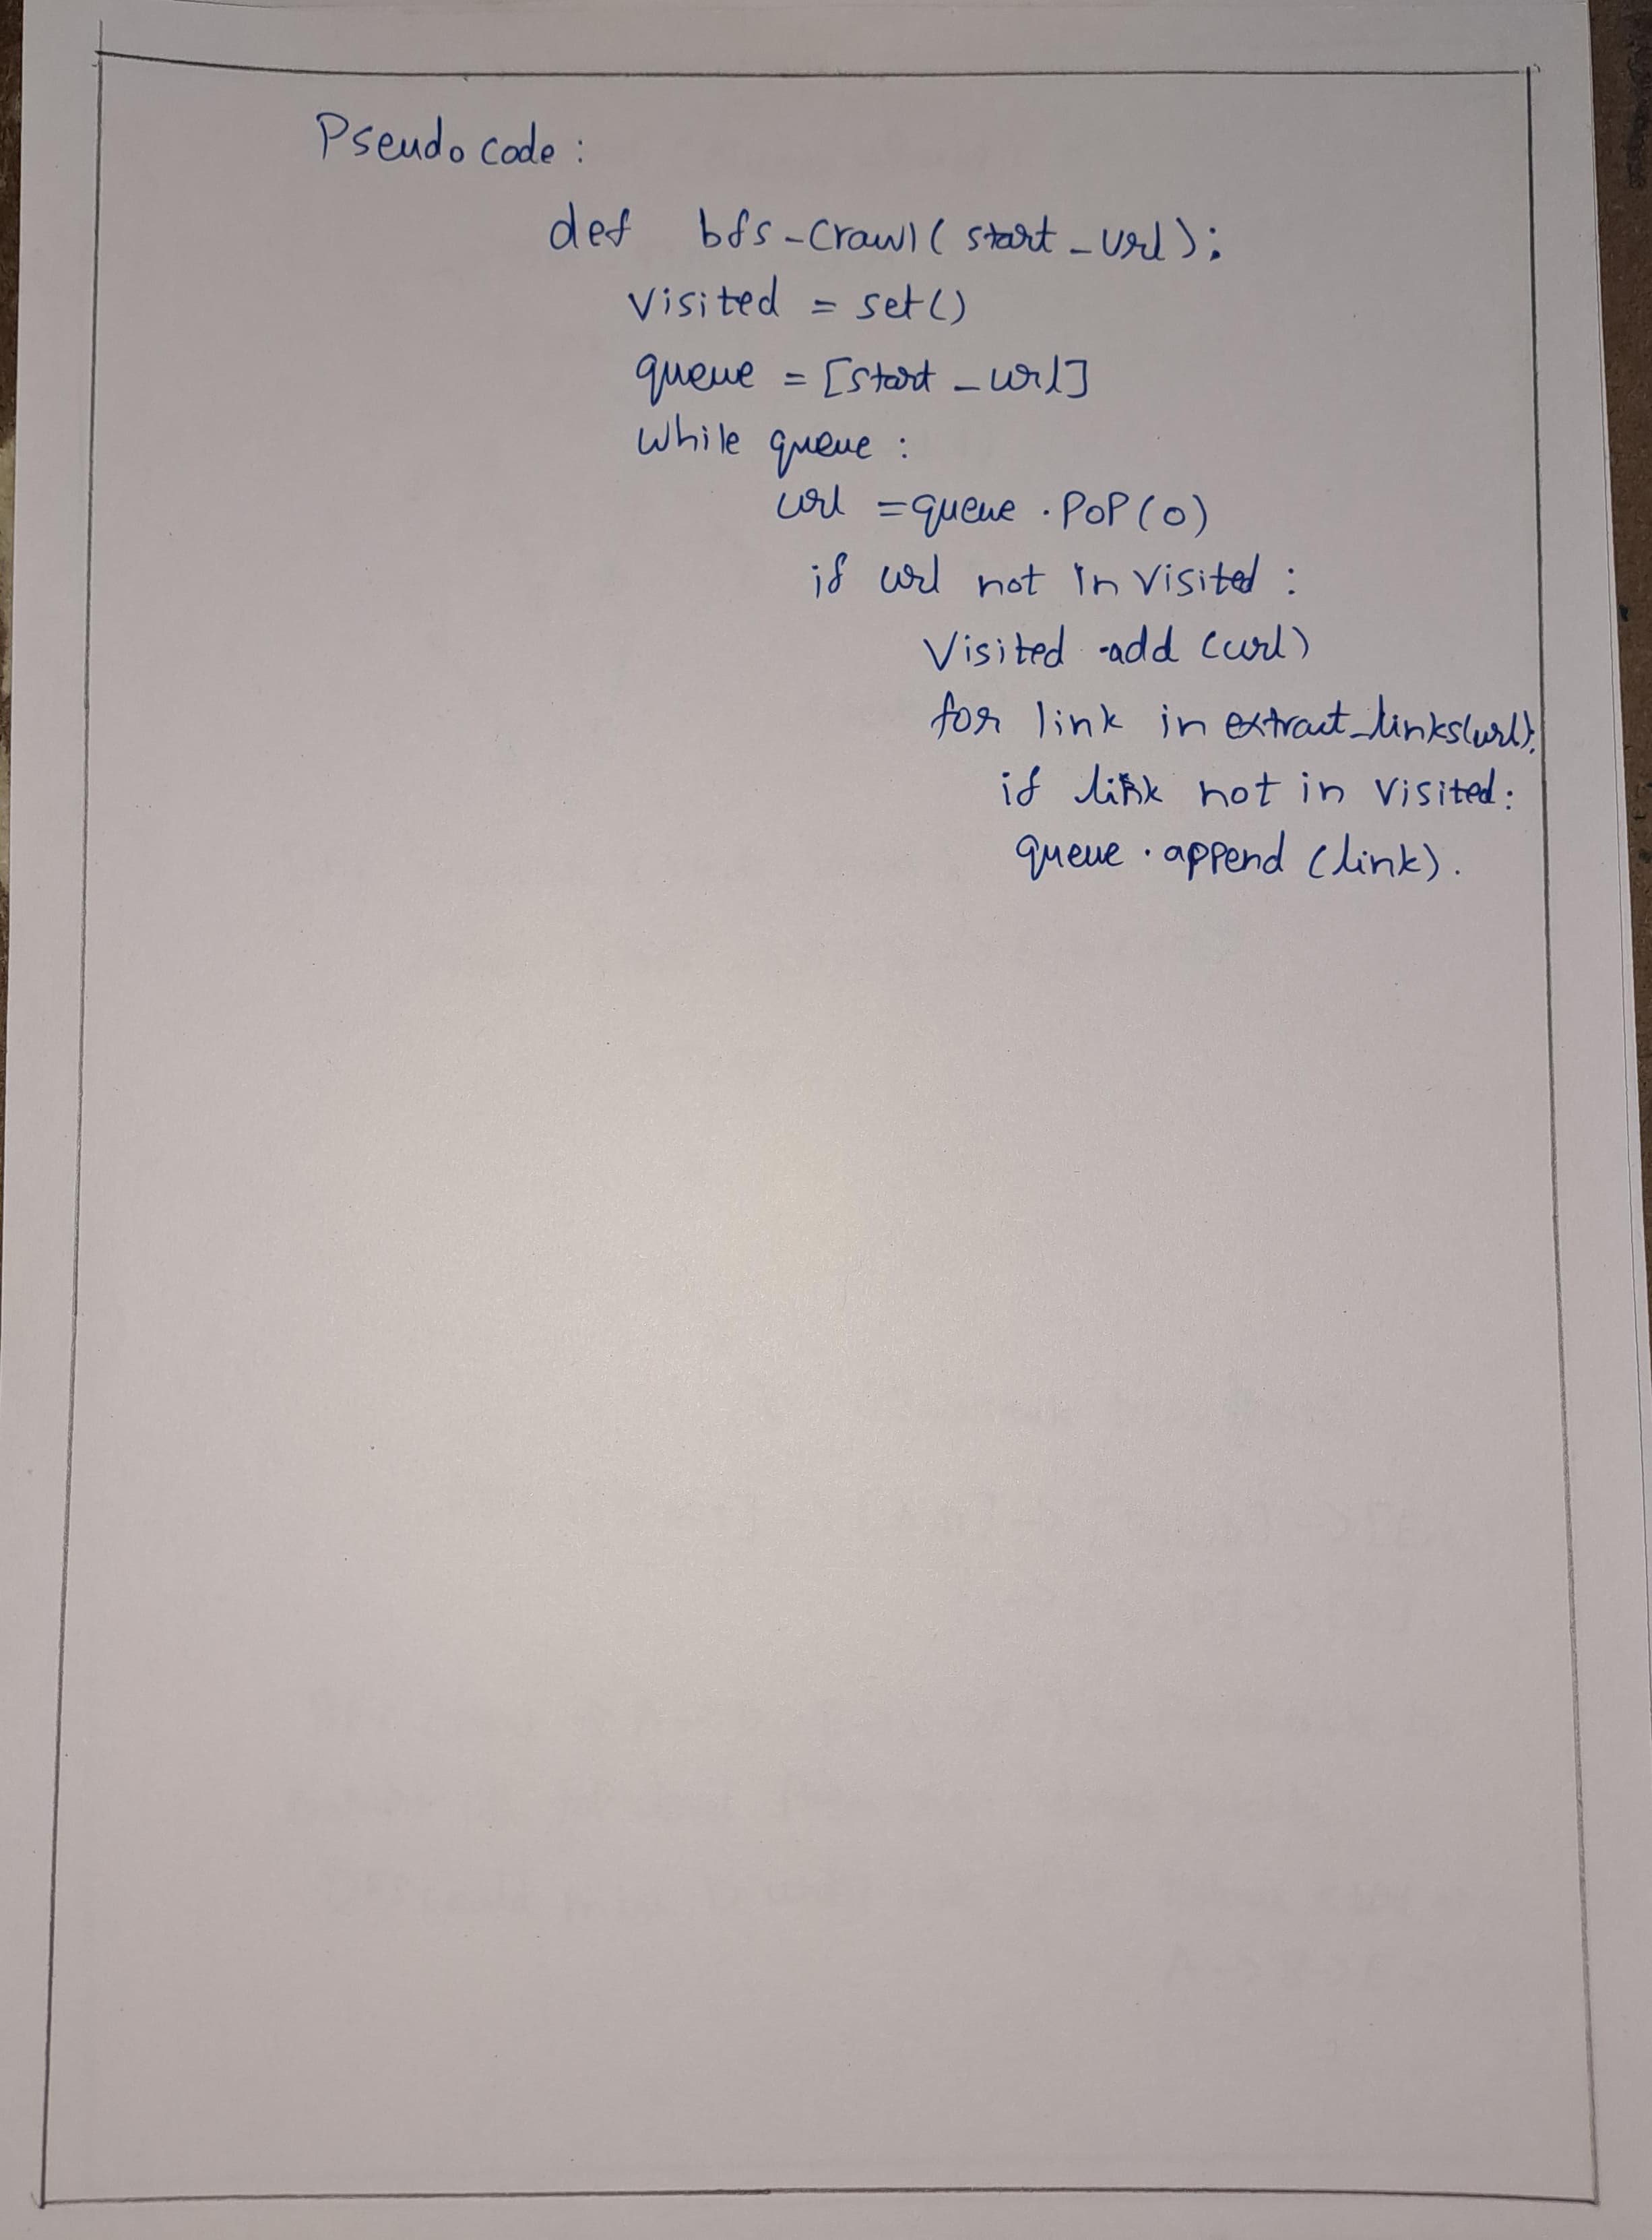 Pseudo code :
def bfs-Crawl ( start_url ):
Visited = set()
queue = [start_url]
While queue :
url = queue . POP (0)
if url not in visited :
Visited .add (url)
for link in extract_links(url):
if link not in visited :
queue . append (link) .